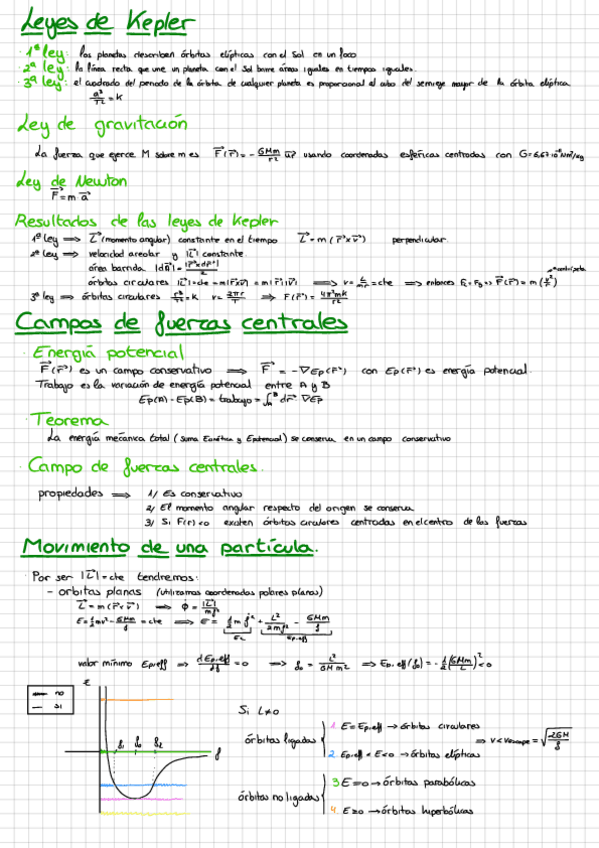 Leyes de Kepler
· 1ª ley: los planetas describen órbitas elípticas con el Sol en un foco
· 2ª ley: la línea recta que une un planeta con el Sol barre áreas iguales en tiempos iguales.
· 3ª ley: el cuadrado del periodo de la órbita de cualquier planeta es proporcional al cubo del semieje mayor de la órbita elíptica.
a³/T² = K
Ley de gravitación
La fuerza que ejerce M sobre m es F⃗(r⃗) = - GMm/r² u⃗r usando coordenadas esféricas centradas con G = 6,67·10⁻¹¹ Nm²/kg
Ley de Newton
F⃗ = m a⃗
Resultados de las leyes de Kepler
1ª ley ⟹ L⃗ (momento angular) constante en el tiempo L⃗ = m (r⃗ × v⃗) perpendicular
2ª ley ⟹ velocidad areolar y |L⃗| constante.
área barrida |dA⃗| = |r⃗ × dr⃗|/2
órbitas circulares |L⃗| = cte = m|r⃗×v⃗| = m|r⃗||v⃗| ⟹ v = L/mr = cte ⟹ entonces Fc = Fg ⟹ F⃗(r⃗) = m (v²/r)
3ª ley ⟹ órbitas circulares r³/T² = K v = 2πr/T ⟹ F(r⃗) = 4π²mK/r²
Campos de fuerzas centrales
· Energía potencial
F⃗(r⃗) es un campo conservativo ⟹ F⃗ = -∇Ep(r⃗) con Ep(r⃗) es energía potencial.
Trabajo es la variación de energía potencial entre A y B
Ep(A) - Ep(B) = trabajo = ∫ᴬᴮ dr⃗ ∇Ep
· Teorema
La energía mecánica total (suma Ecinética y Epotencial) se conserva en un campo conservativo
· Campo de fuerzas centrales.
propiedades ⟹ 1/ Es conservativo
2/ El momento angular respecto del origen se conserva
3/ Si F(r) < 0 existen órbitas circulares centradas en el centro de las fuerzas
Movimiento de una partícula.
· Por ser |L⃗| = cte tendremos:
- orbitas planas (utilizamos coordenadas polares planas)
L⃗ = m (r⃗ × v⃗) ⟹ φ̇ = |L⃗|/mρ²
E = ½mv² - GMm/ρ = cte ⟹ E = ½ m ρ̇² + L²/2mρ² - GMm/ρ
Ec Ep.eff
valor mínimo Ep.eff ⟹ dEp.eff/dρ = 0 ⟹ ρ₀ = L²/GMm² ⟹ Ep.eff(ρ₀) = -½ (GMm/L)² < 0
E
no
si
ρ₁ ρ₀ ρ₂ ρ
Si L≠0
órbitas ligadas
1. E = Ep.eff → órbitas circulares
2. Ep.eff < E < 0 → órbitas elípticas
⟹ v < Vescape = √(2GM/ρ)
órbitas no ligadas
3. E = 0 → órbitas parabólicas
4. E ≥ 0 → órbitas hiperbólicas